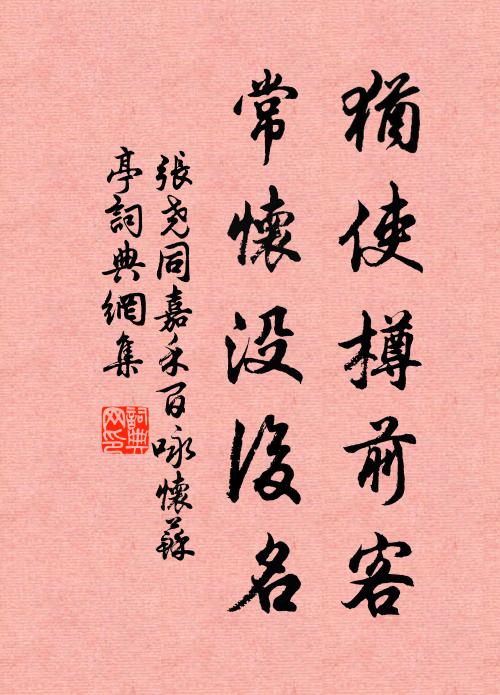 猶使樽前客
常懷没後名
張尭同嘉禾百咏懷蘇
亭詞典網集
詞典
网印